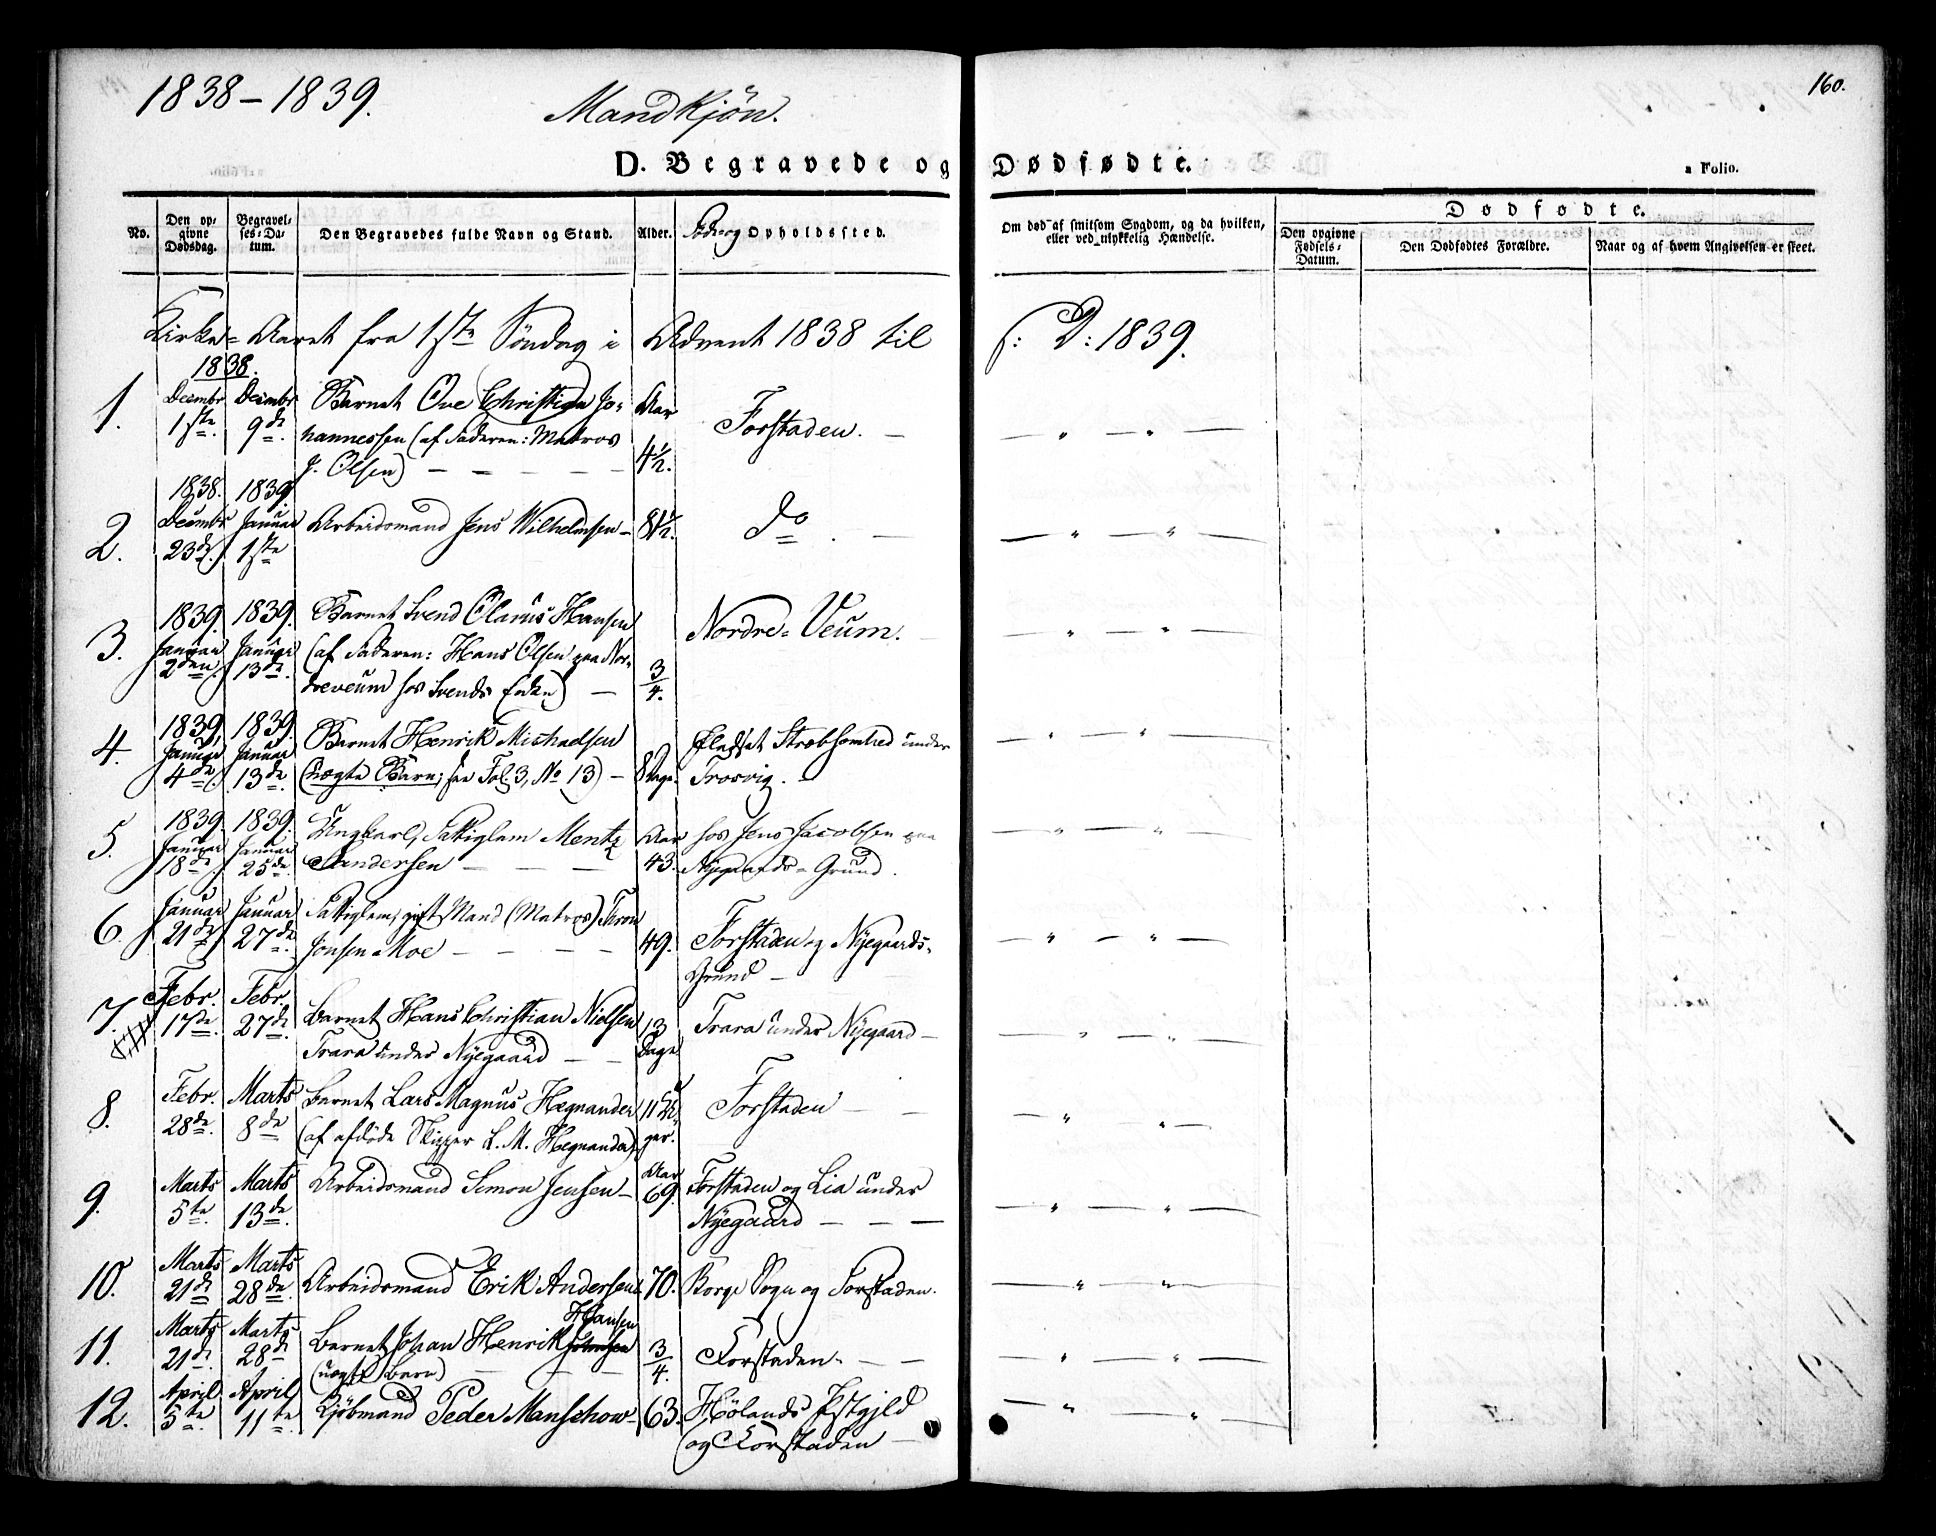 1838 - 1839.
Mandkjön.
160.
D. Begravede og Dødfødte.
a Folio.
No.
Den op-
givne
Dødsdag.
Begravel-
ses-Da-
tum.
Den Begravedes fulde Navn og Stand.
Alder.
Opholdssted.
Om død af smitsom Sygdom, og da hvilken,
eller ved ulykkelig Hændelse.
Dødfødte.
Den opgivne
Fødsels-
Datum.
Den Dødfødtes Forældre.
Naar og af hvem Angivelsen er skeet.
Kirke-Aaret fra 1ste Söndag i Advent 1838 til f: D: 1839.
1838.
1. Decmbr 1ste. Decmbr 9de. Barnet Ove Christian Jo-
hannessen (af Faderen: Matros
J. Olsen) Aar 4½. Forstaden.
2. 1838. Decmbr 23de. 1839 Januar 1ste Arbeidsmand Jens Wilhelmsen 81½. do
3. 1839. Januar 2den. 1839. Januar 13de. Barnet Svend Olavus Hansen
(af Faderen: Hans Olsen paa Nor-
dreveum hos Svends Enke) 3/4. Nordre-Veum.
4. 1839. Januar 4de. 1839. Januar 13de. Barnet Henrik Michaelsen
(uægte Barn; see Fol. 3, No 13) 8 Dage. Pladset Stræbsomhed under
Trosvig.
5. 1839. Januar 18de. 1839. Januar 25de. Ungkarl, Fattiglem Mentz
Andersen Aar 43. hos Jens Jacobsen paa
Nygaards-Grund.
6. Januar 21de. Januar 27de. Fattiglem, gift Mand (Matros)
Jonsen Moe 49. Forstaden og Nyegaards-
Grund
7. Febr. 17de. Febr. 27de. Barnet Hans Christian Nielsen
Trara under Nyegaard 13 Dage Trara under Nyegaard
8. Febr. 28de. Marts 8de Barnet Lars Magnus Hegnander
(af afdöde Skipper L. M. Hegnander) 11 Uger. Forstaden
9. Marts 5te. Marts 13de. Arbeidsmand Simon Jensen Aar 69. Forstaden og Lia under
Nyegaard
10. Marts 21de Marts 28de. Arbeidsmand Erik Andersen 70. Borge Sogn og Forstaden.
Hansen
11. Marts 21de. Marts 28de Barnet Johan Henrik
(uægte Barn) 3/4. Forstaden.
12. April 5te. April 11te. Kjöbmand Peder Manschow 63. Hölands Pstgjld
og Forstaden